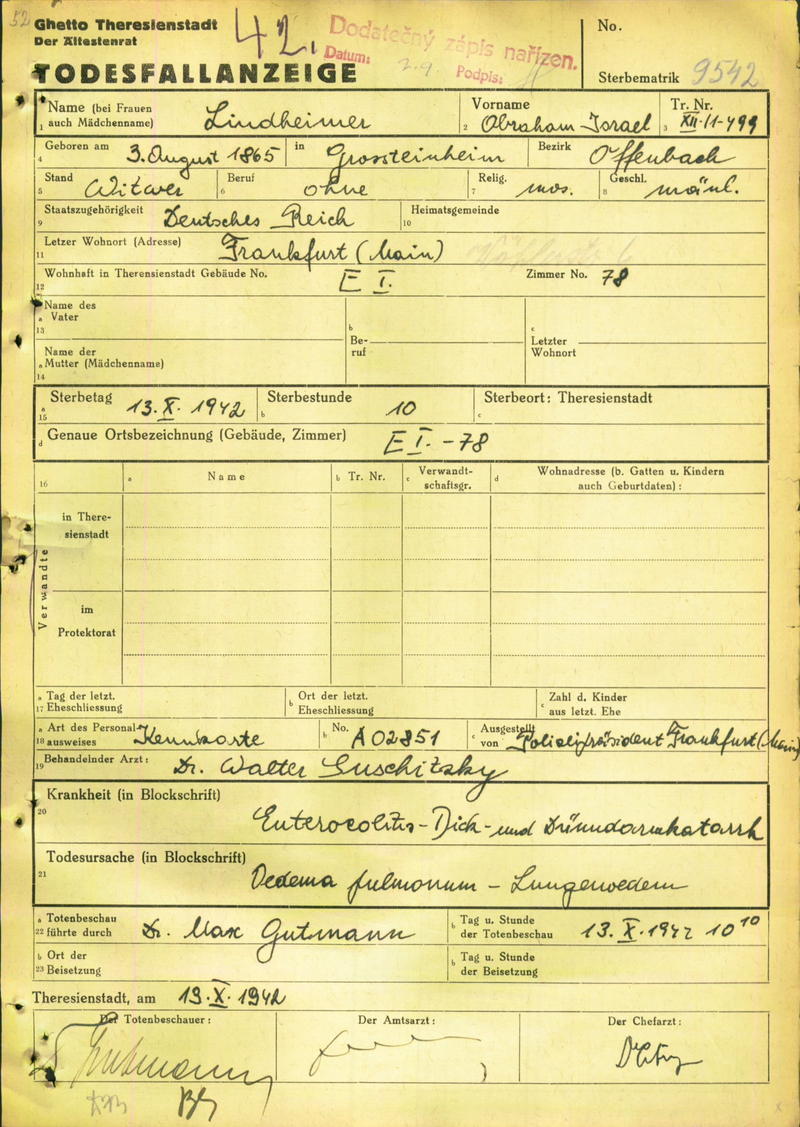 52
Ghetto Theresienstadt
Der Ältestenrat
42.
Dodatečný zápis nařízen.
Datum:
Podpis:
No.
TODESFALLANZEIGE
Sterbematrik 9542
1 Name (bei Frauen auch Mädchenname) Lindheimer
2 Vorname Abraham Israel
3 Tr. Nr. XII-/1-499
4 Geboren am 3. August 1865 in Grossteinheim Bezirk Offenbach
5 Stand Witwer
6 Beruf ohne
7 Relig. mos.
8 Geschl. mänl.
9 Staatszugehörigkeit Deutsches Reich
10 Heimatsgemeinde
11 Letzer Wohnort (Adresse) Frankfurt (Main)
12 Wohnhaft in Theresienstadt Gebäude No. E I. Zimmer No. 78
13 a Name des Vater
b Beruf
c Letzter Wohnort
14 a Name der Mutter (Mädchenname)
15 a Sterbetag 13.X.1942
b Sterbestunde 10
c Sterbeort: Theresienstadt
d Genaue Ortsbezeichnung (Gebäude, Zimmer) E I. - 78
16 a Name b Tr. Nr. c Verwandtschaftsgr. d Wohnadresse (b. Gatten u. Kindern auch Geburtdaten):
Verwandte
in Theresienstadt
im Protektorat
17 a Tag der letzt. Eheschliessung
b Ort der letzt. Eheschliessung
c Zahl d. Kinder aus letzt. Ehe
18 a Art des Personalausweises Kennkarte
b No. A 02851
c Ausgestellt von Polizeipräsident Frankfurt (Main)
19 Behandelnder Arzt: Dr. Walter Suschitzky
20 Krankheit (in Blockschrift)
Enterocolitis - Dick- und Dünndarmkatarrh
21 Todesursache (in Blockschrift)
Oedema pulmonum - Lungenoedem
22 a Totenbeschau führte durch Dr. Max Gutmann
b Tag u. Stunde der Totenbeschau 13.X.1942 10 10
23 b Ort der Beisetzung
b Tag u. Stunde der Beisetzung
Theresienstadt, am 13.X.1942
Der Totenbeschauer:
Der Amtsarzt:
Der Chefarzt:
Gutmann